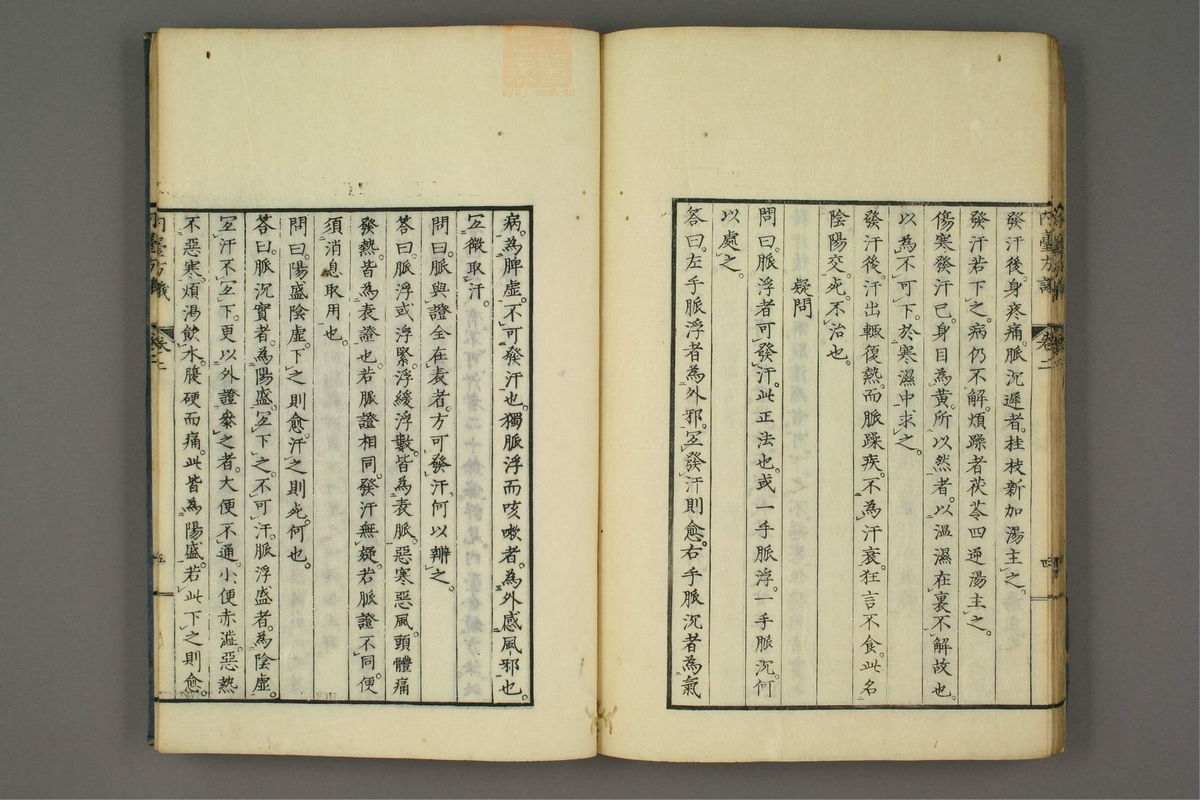 發汗後。身疼痛。脈沉遲者。桂枝新加湯主之。
發汗若下之。病仍不解。煩躁者。茯苓四逆湯主之。
傷寒發汗已。身目為黃。所以然者。以溫濕在裏不解故也。
以為不可下。於寒濕中求之。
發汗後。汗出輒復熱。而脈躁疾。不為汗衰。狂言不食。此名
陰陽交。死不治也。
疑問
問曰。脈浮者可發汗。此正法也。或一手脈浮。一手脈沉。何
以處之。
答曰。左手脈浮者為外邪。宜發汗則愈。右手脈沉者為氣
內臺方議
卷二
四
病。為脾虛。不可發汗也。獨脈浮而咳嗽者。為外感風邪也。
宜微取汗。
問曰。脈與證全在表者。方可發汗。何以辨之。
答曰。脈浮或浮緊。浮緩浮數。皆為表脈。惡寒惡風。頭體痛
發熱。皆為表證也。若脈證相同。發汗無疑。若脈證不同。便
須消息取用也。
問曰。陽盛陰虛。下之則愈。汗之則死。何也。
答曰。脈沉實者。為陽盛。宜下之。不可汗。脈浮盛者。為陰虛。
宜汗不宜下。更以外證參之者。大便不通。小便赤澁。惡熱
不惡寒。煩渴飲水。腹硬而痛。此皆為陽盛。若此下之則愈。
內臺方議
卷二
五
zysj.com.cn